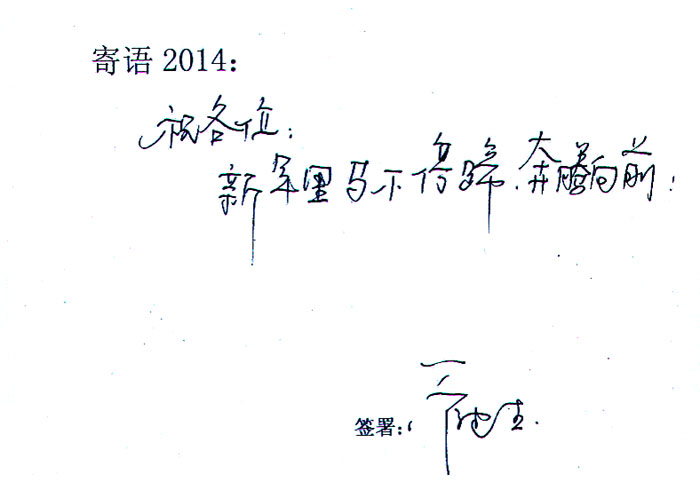 寄语 2014：
祝各位：
新年里马不停蹄，奔腾向前！
签署：